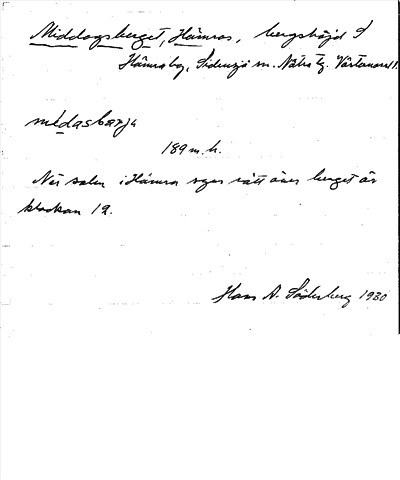 Middagsberget, Hämras, bergshöjd S
Hämra by, Sidensjö sn. Nätra tg. Västernorrl.
midasbærja
189 m.h.
När solen i Hämra synes rätt över berget är
klockan 12.
Hans A. Söderberg 1930